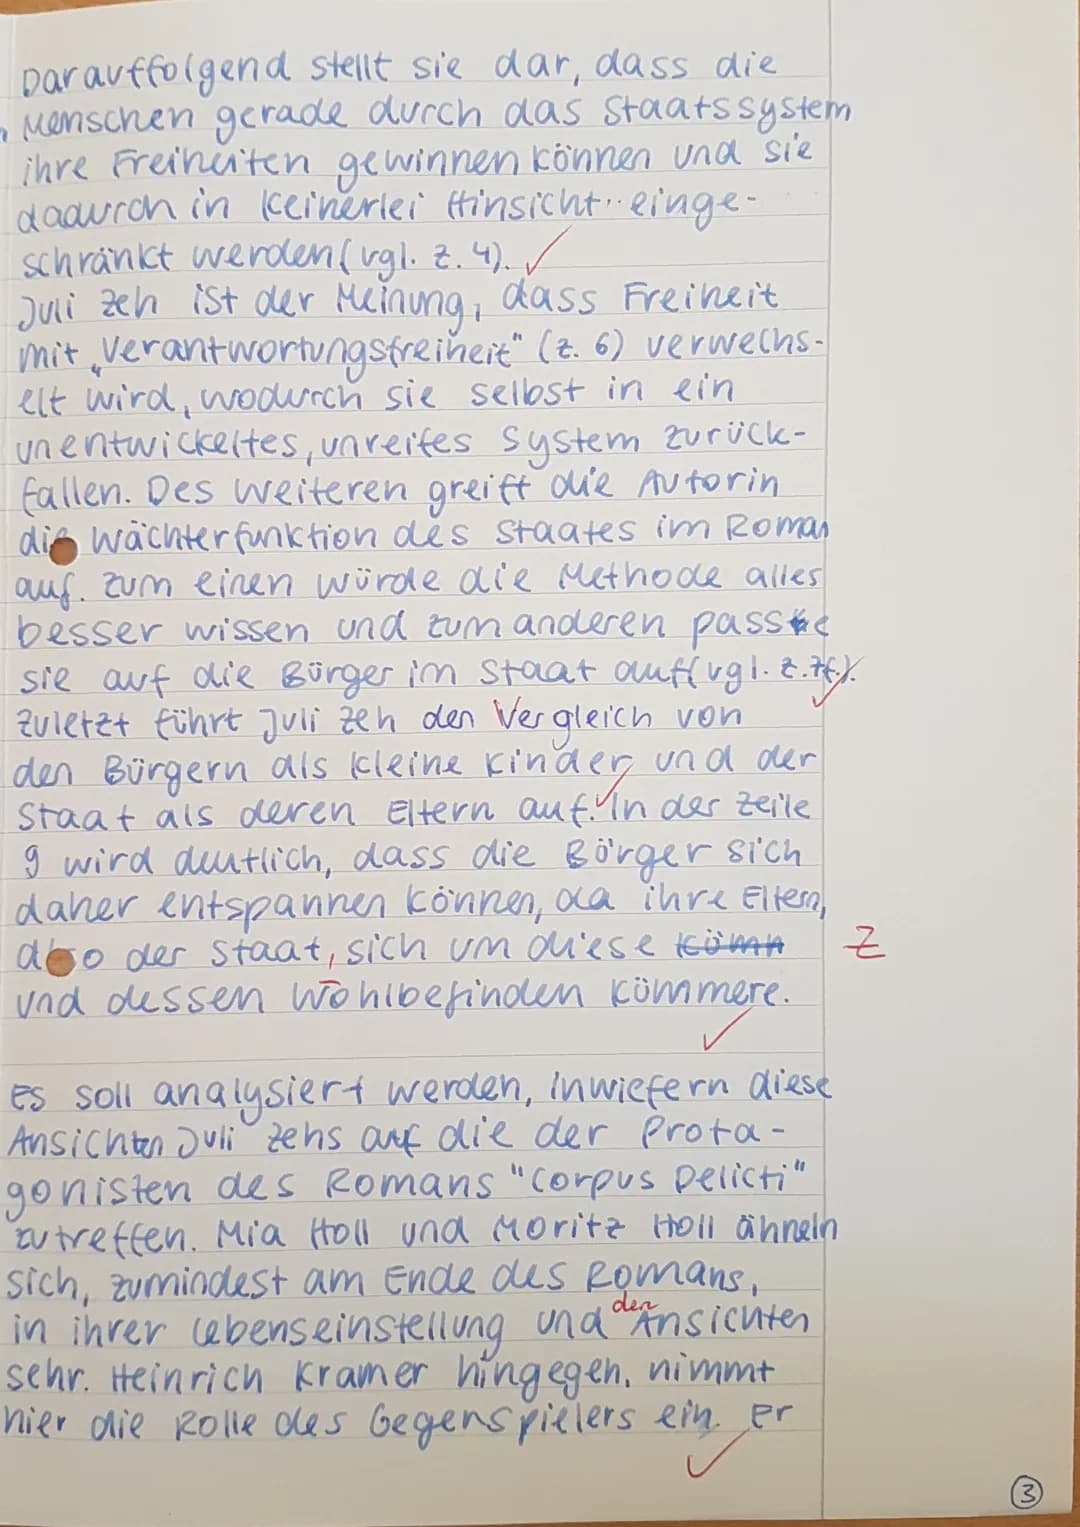 Darauffolgend stellt sie dar, dass die
Menschen gerade durch das Staatssystem
ihre Freiheiten gewinnen können und sie
dadurch in keinerlei Hinsicht einge-
schränkt werden (vgl. Z. 4). ✓
Juli Zeh ist der Meinung, dass Freiheit
mit „Verantwortungsfreiheit" (Z. 6) verwechs-
elt wird, wodurch sie selbst in ein
unentwickeltes, unreifes System zurück-
fallen. Des Weiteren greift die Autorin
die Wächterfunktion des Staates im Roman
auf. Zum einen würde die Methode alles
besser wissen und zum anderen passe
sie auf die Bürger im Staat auf (vgl. Z. 7f.). ✓
Zuletzt führt Juli Zeh den Vergleich von
den Bürgern als kleine Kinder und der
Staat als deren Eltern auf. ✓ In der Zeile
9 wird deutlich, dass die Bürger sich
daher entspannen können, da ihre Eltern,
also der Staat, sich um diese kümm Z
und dessen Wohlbefinden kümmere. ✓
Es soll analysiert werden, inwiefern diese
Ansichten Juli Zehs auf die der Prota-
gonisten des Romans "Corpus Delicti"
zutreffen. Mia Holl und Moritz Holl ähneln
sich, zumindest am Ende des Romans,
in ihrer Lebenseinstellung und den Ansichten
sehr. Heinrich Kramer hingegen, nimmt
hier die Rolle des Gegenspielers ein. Er ✓
3